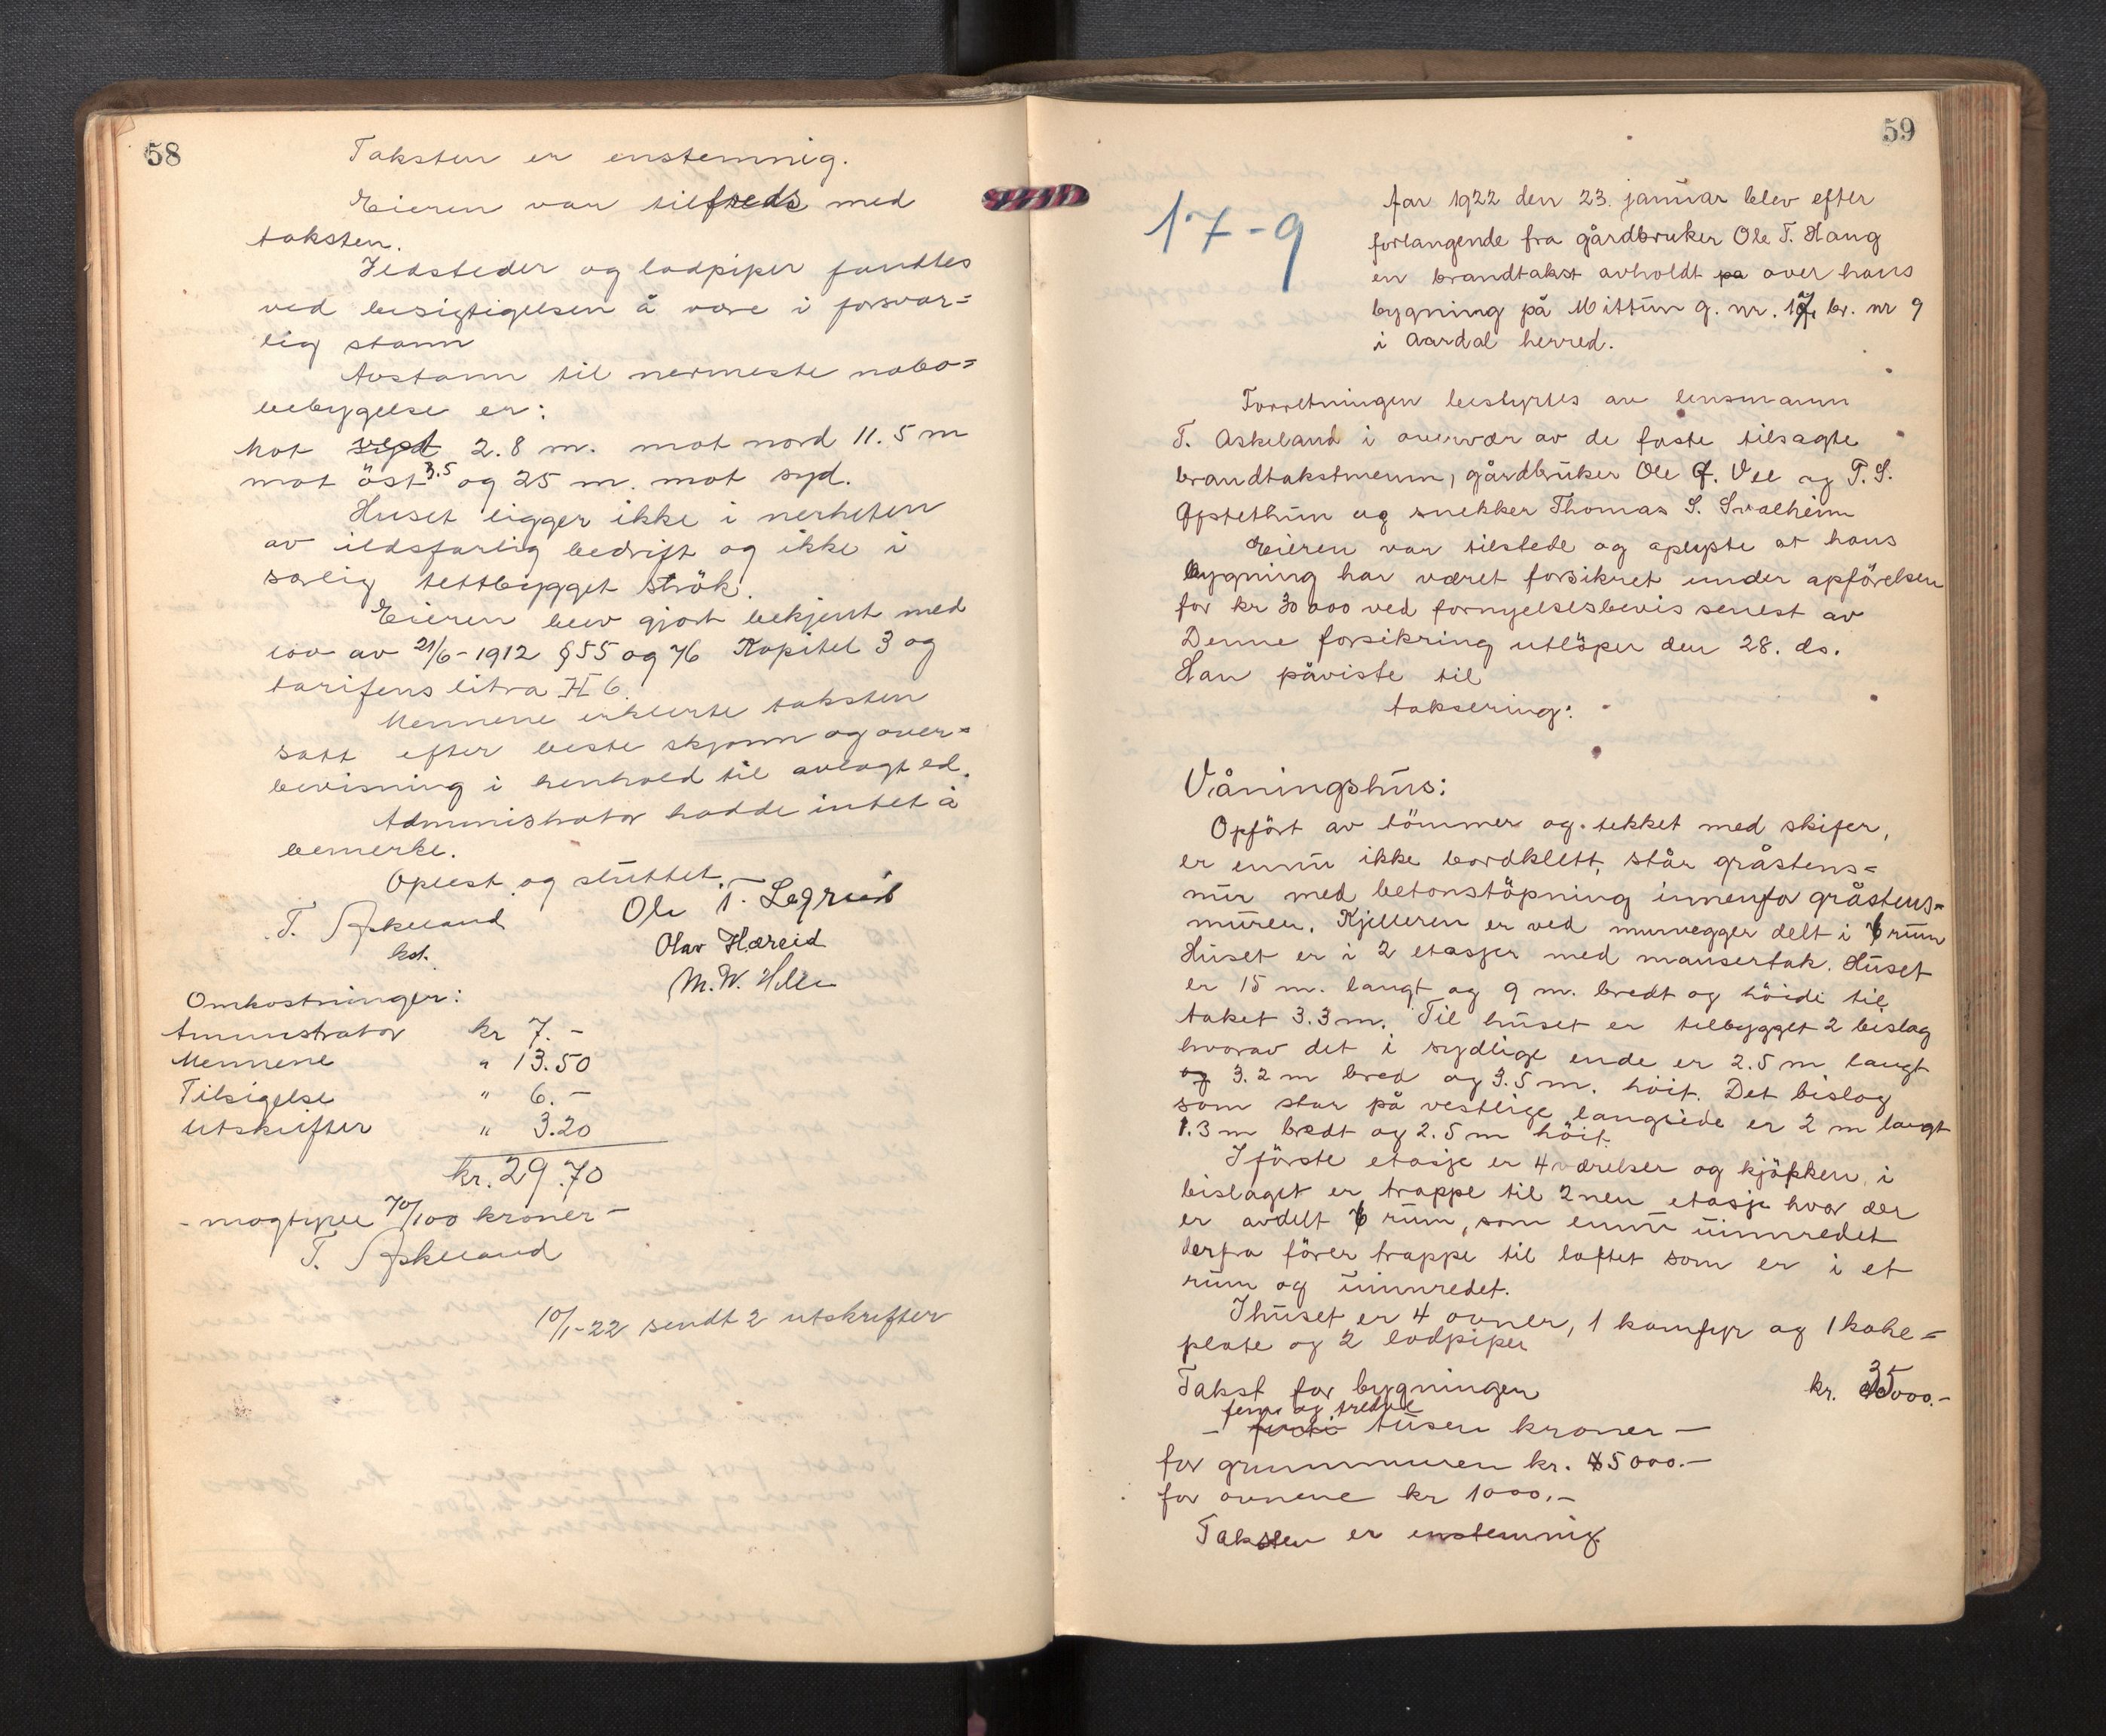 58
Taksten er enstemmig.
Eieren var tilfreds med
taksten.
Ildsteder og lodpiper fandtes
ved besigtigelsen å være i forsvar=
lig stann
Avstann til nermeste nabo=
bebygelse er:
mot 2.8 m. mot nord 11.5 m
mot öst 3.5 og 25 m. mot syd.
Huset ligger ikke i nerheten
av ildsfarlig bedrift og ikke i
særlig tettbygget strök.
Eieren blev gjort bekjent med
lov av 21/6-1912 § 55 og 76 Kapitel 3 og
tarifens litra H 6.
Mennene erklerte taksten
satt efter beste skjønn og over=
bevisning i henhold til avlagt ed.
Administrator hadde intet å
bemerke.
Oplest og sluttet.—
T. Askeland
kst.
Ole T. Legreid
Olav Hæreid
M. W.
Omkostninger:
Aministrator kr 7.-
Mennene " 13.50
Tilsigelse " 6.-
Utskrifter " 3.20
kr. 29.70
- niogtyve 70/100 kroner -
T. Askeland
10/1-22 sendt 2 utskrifter
59
17-9
År 1922 den 23. januar blev efter
forlangende fra gårdbruker Ole T. Haug
en brandtakst avholdt pa over hans
bygning på Mittun g. nr. 17, br. nr 9
i Aardal herred.
Forretningen bestyrtes av lensmann
T. Askeland i overvær av de faste tilsagte
brandtakstmenn, gårdbruker Ole Vee og T. S.
Opstethun og snekker Thomas S. Svalheim
Eieren var tilstede og oplyste at hans
bygning har været forsikret under opförelsen
for kr 30000 ved fornyelsesbevis senest av
Denne forsikring utlöper den 28. ds.
Han påviste til
taksering:
Våningshus:
Opfört av tömmer og tekket med skifer,
er ennu ikke bordklett, står gråstens=
mur med betonstöpning innenfor gråstens=
muren. Kjelleren er ved murvegger delt i 6 rum
Huset er i 2 etasjer med mansertak. Huset
er 15 m. langt og 9 m. bredt og höide til
taket 3.3 m. Til huset er tilbygget 2 bislag
hvorav det i sydlige ende er 2.5 m langt
og 3.2 m bred og 3.5 m. höit. Det bislag
som står på vestlige langside er 2 m langt
1.3 m bredt og 2.5 m höit.
I förste etasje er 4 værelser og kjökken, i
bislaget er trappe til 2nen etasje hvor der
er avdelt 6 rum, som ennu uinnredet
derfra förer trappe til loftet som er i et
rum og uinnredet.
I huset er 4 ovner, 1 komfyr og 1 koke=
plate og 2 lodpiper
Takst for bygningen kr. 35000.-
fem og tredve
— firti tusen kroner —
for grunnmuren kr. 5000.—
for ovnene kr 1000.—
Taksten er enstemmig